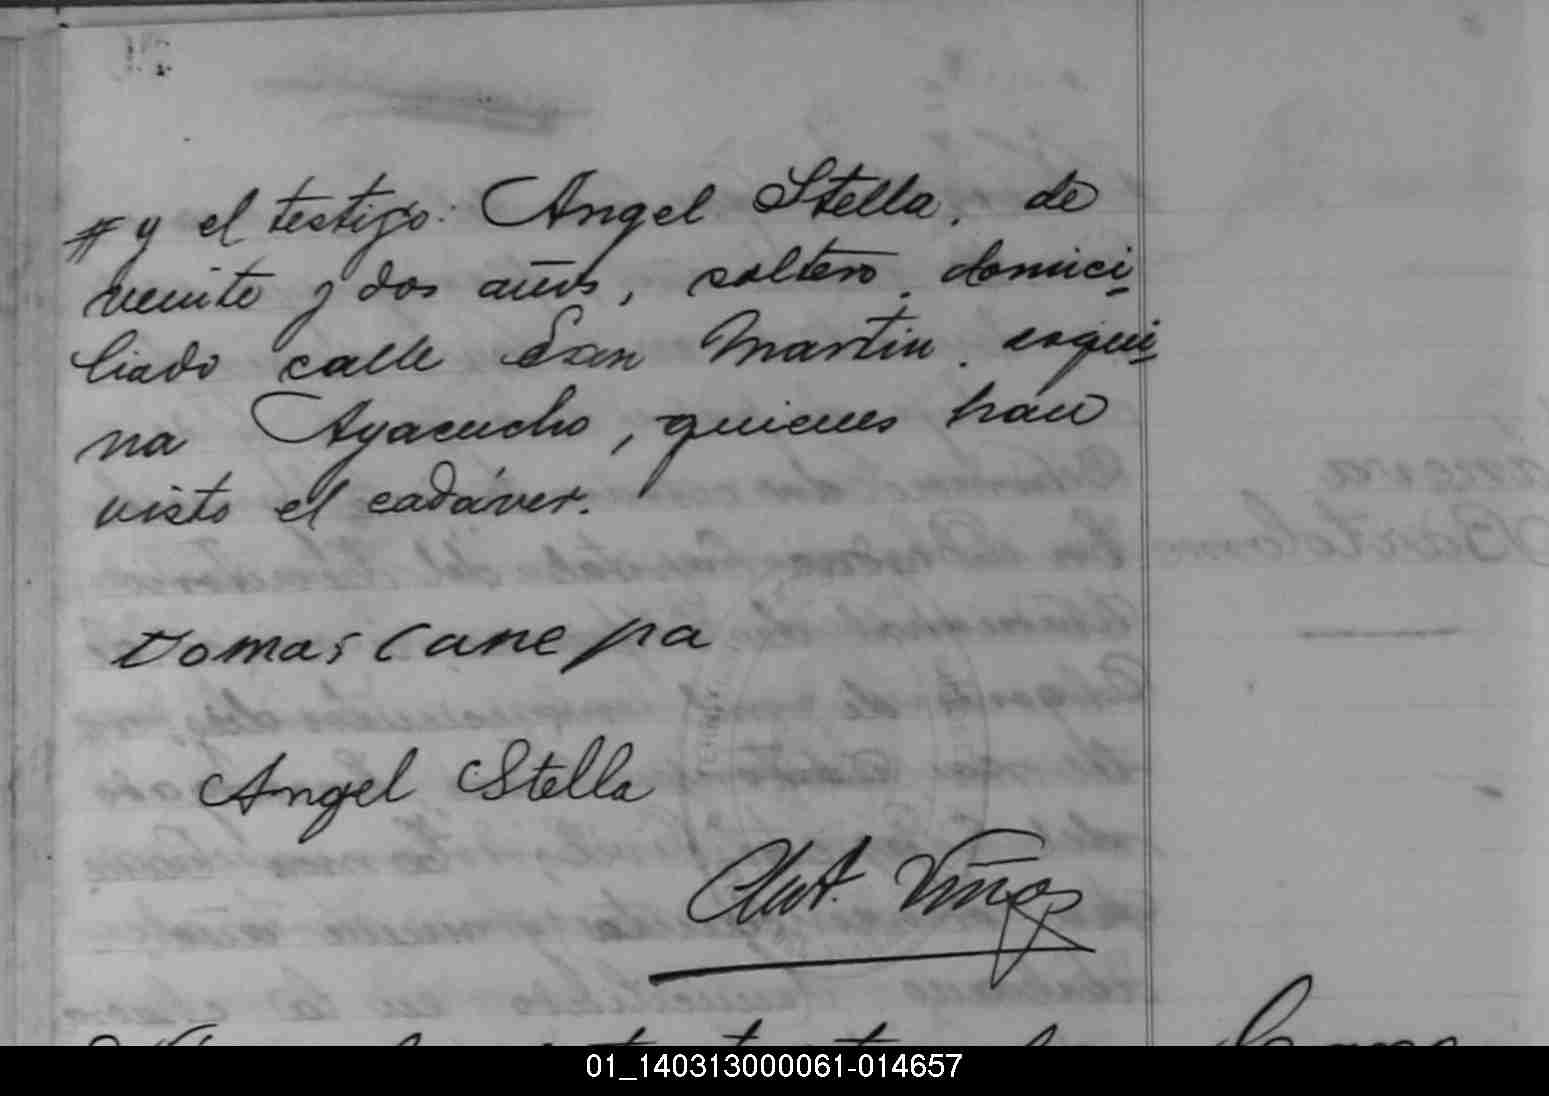 # y el testigo: Angel Stella, de
veinte y dos años, soltero, domici-
liado calle San Martin, esqui-
na Ayacucho, quienes han
visto el cadáver.
Tomas Canepa
Angel Stella
Ant. Viños
01_140313000061-014657